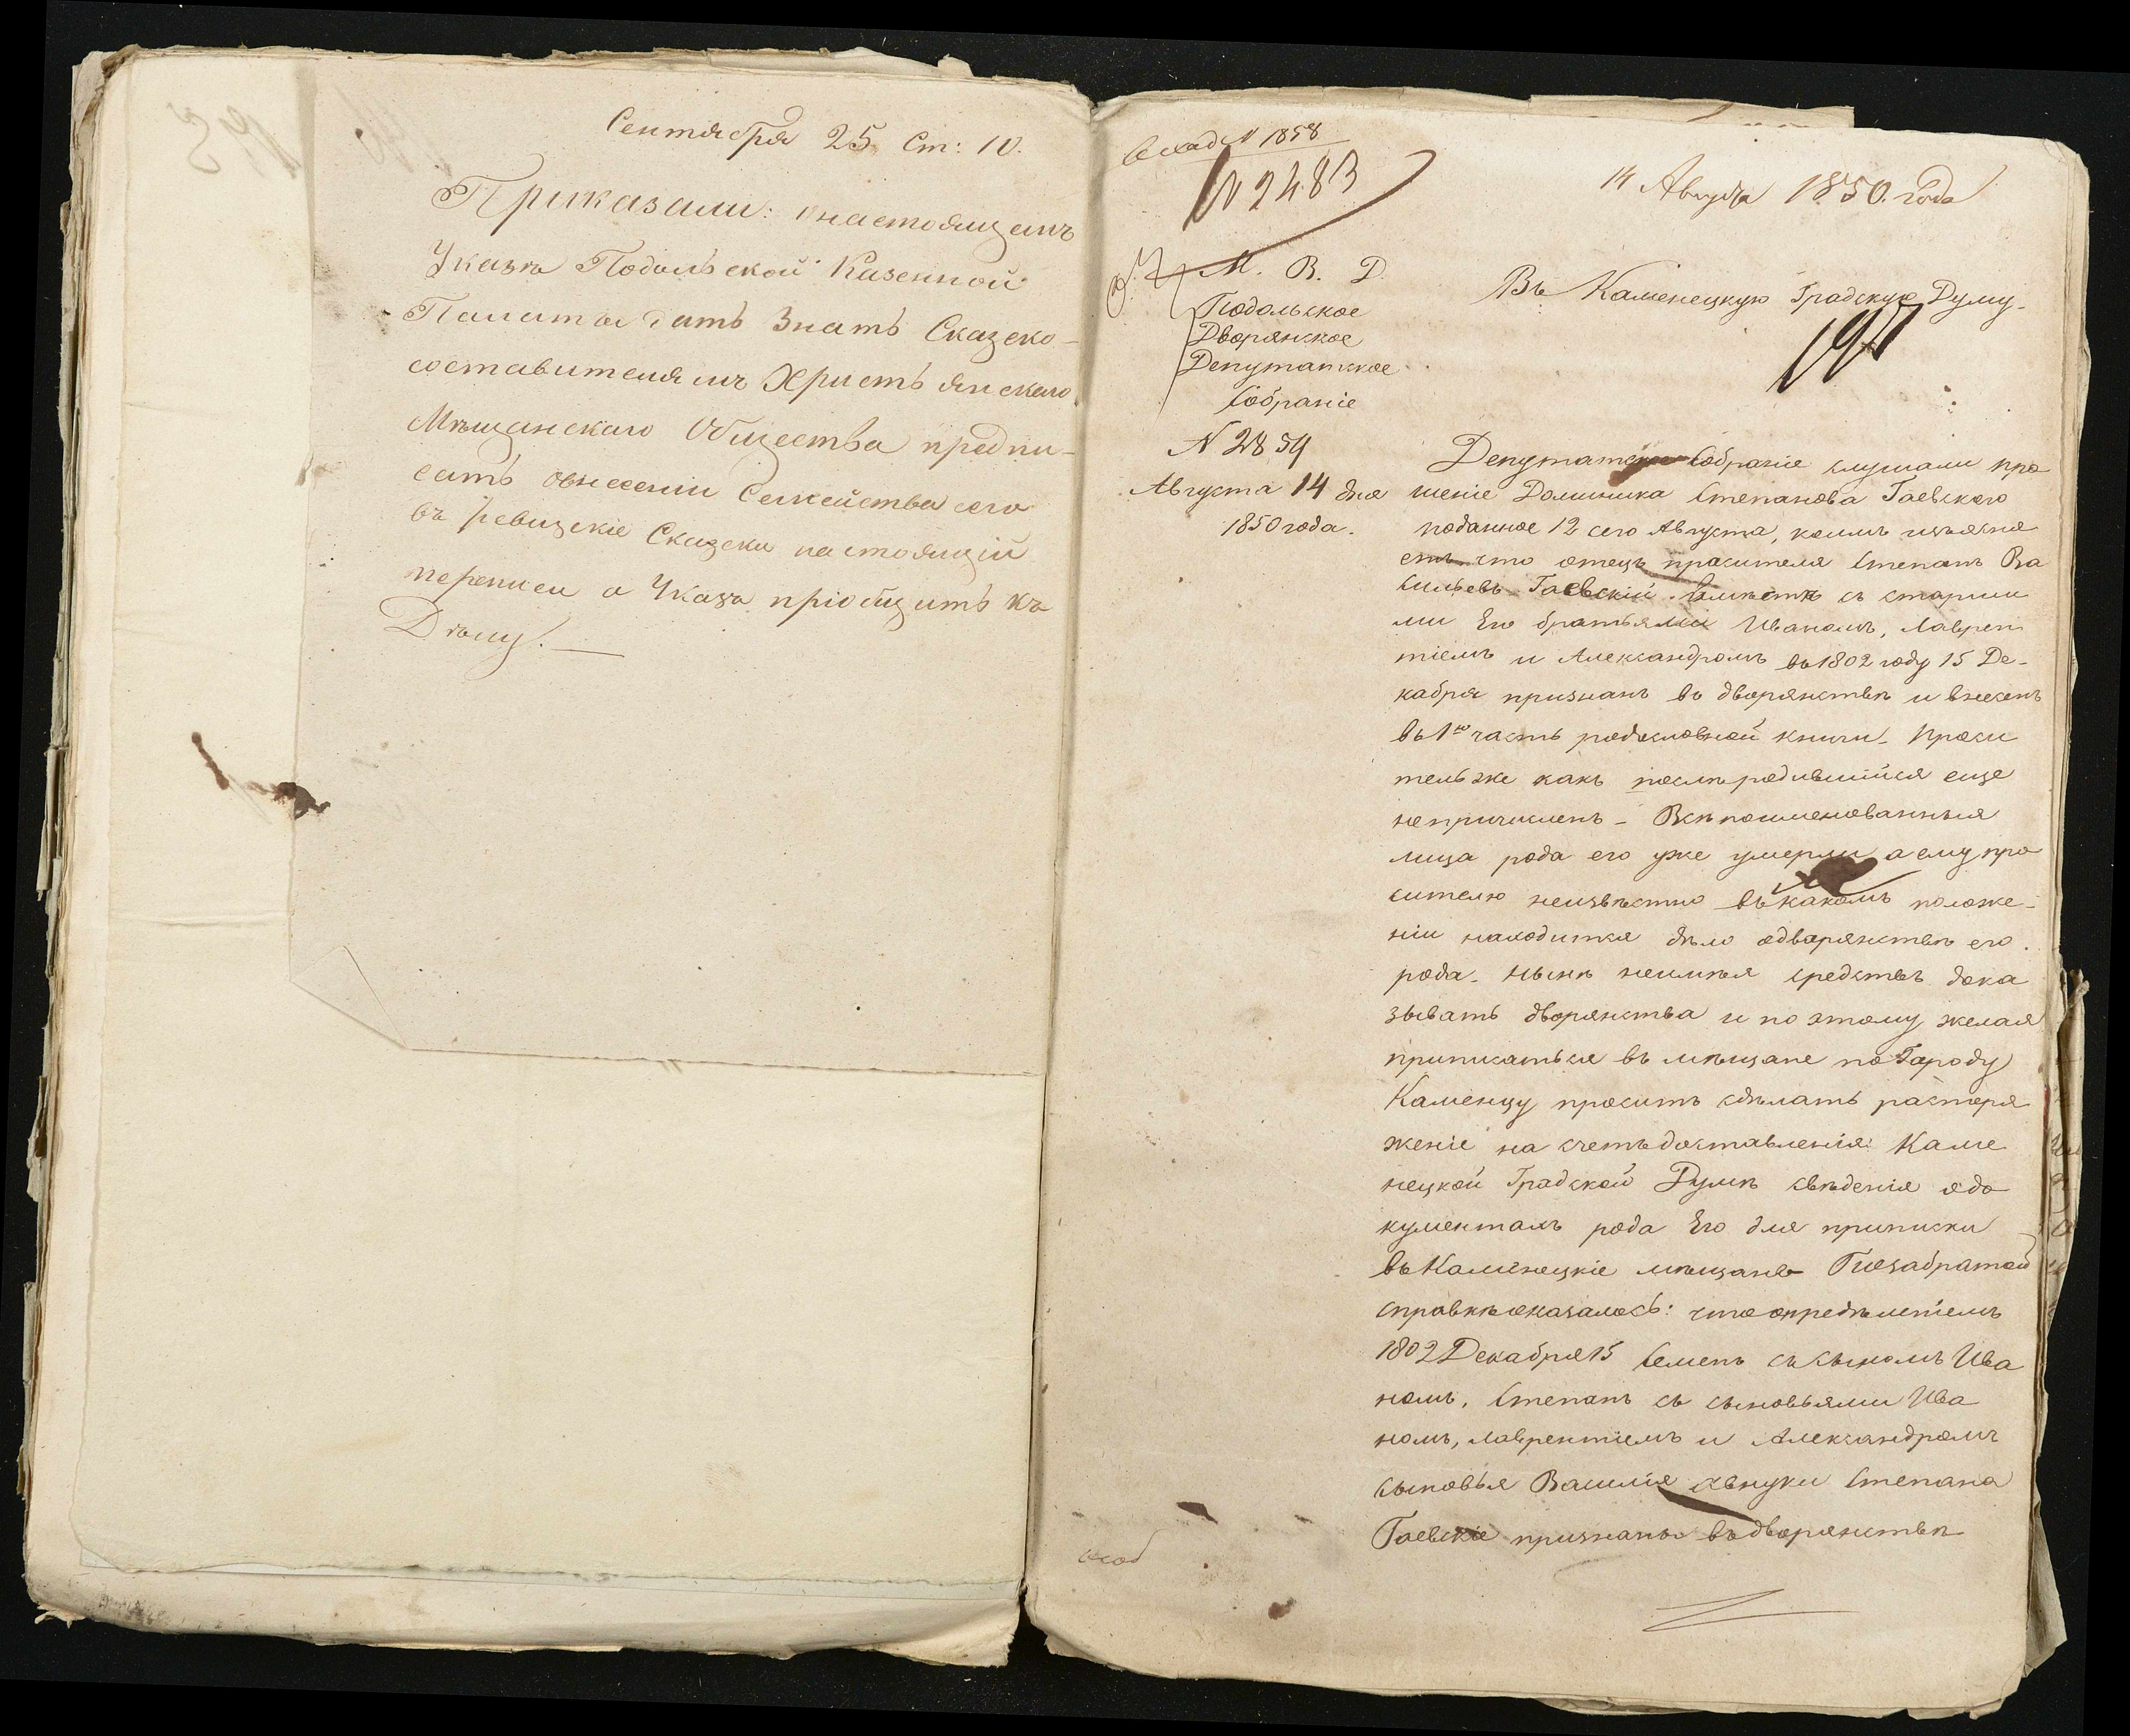 Сентября 25 Ст: 10.
Приказали: о настоящемъ
Указѣ Подольской Казенной
Палаты дать знать Сказско-
составителямъ Христьянскаго
Мѣщанскаго Общества предпи-
сать овнесеніи Семейства сего
въ ревизскіе Сказки настоящій
переписи а Указъ пріобщить къ
Дѣлу.
Вход N 1858
N 2483
14 Августа 1850. года
М. В. Д.
Подольское
Дворянское
Депутатское
Собраніе
N 2854
Августа 14 дня
1850 года.
Въ Каменецкую Градскую Думу.
Депутатское Собраніе слушали про
шеніе Доминика Степанова Гаевского
поданное 12 сего Августа, коимъ изъясня
етъ что отецъ просителя Степанъ Ва
сильевъ Гаевскій вместѣ съ старши
ми Его братьями Иваномъ, Лаврен
тіемъ и Александромъ въ 1802 году 15 Де-
кабря признанъ въ дворянствѣ и внесенъ
въ 1ю часть родословной книги. Проси
тель же какъ послѣ родившійся еще
непричисленъ - Всѣ поименованныя
лица рода его уже умерли а ему про
сителю неизвѣстно въ какомъ положе-
ніи находится дѣло одворянствѣ его
рода. нынѣ неимѣя средствъ дока
зывать дворянства и по этому желая
приписаться въ мѣщане по Городу
Каменцу проситъ сдѣлать распоря
женіе на счетъ доставленія Каме
нецкой Градской Думѣ свѣденія одо
кументахъ рода Его для приписки
въ Каменецкіе мѣщане Позабратой
справкѣ оказалось: что опредѣленіемъ
1802 Декабря 15 Семенъ съ сыномъ Ива
номъ, Степанъ съ сыновьями Ива
номъ, Лаврентіемъ и Александромъ
сыновья Василія авнуки Степана
Гаевскіе признаны въ дворянствѣ